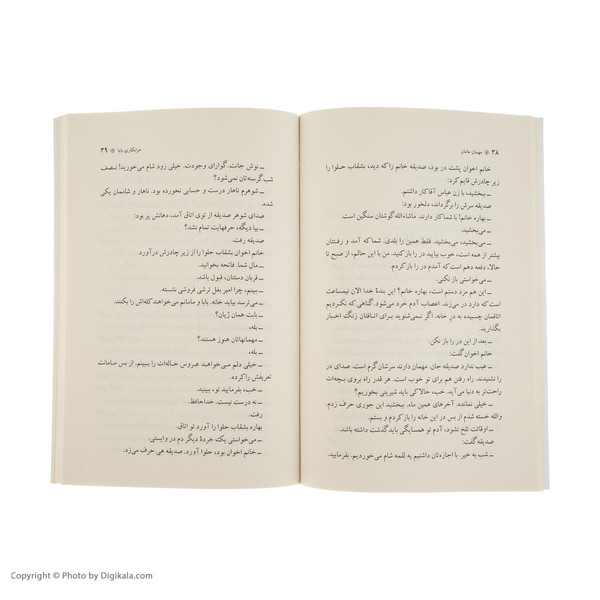 ۳۸ ❋ مهمان مامان
خانم اخوان پشت در بود، صدیقه خانم را که دید، بشقاب حلوا را از
زیر چادرش قایم کرد:
ــ ببخشید، با زن عباس آقا کار داشتم.
صدیقه سرش را برگرداند، دلخور بود:
ــ بهاره خانم! با شما کار دارند. ماشاءالله گوشتان سنگین است.
ــ می‌بخشید.
ــ می‌بخشید، می‌بخشید. فقط همین را بلدی. شما که آمد و رفتتان
بیشتر از همه است، خوب بیایید در را باز کنید. من با این حالم، از صبح تا
حالا، دفعه دهم است که آمدم در را باز کردم.
ــ می‌خواستی باز نکنی.
ــ این هم مزد دستم است، بهاره خانم؟ این بندهٔ خدا الان نیم‌ساعت
است که دارد در می‌زند. اعصاب آدم خرد می‌شود. گناهی که نکردیم
اتاقمان چسبیده به در خانه. اگر نمی‌شنوید برای اتاقتان زنگ اخبار
بگذارید.
ــ بعد از این در را باز نکن.
خانم اخوان گفت:
ــ عیب ندارد صدیقه جان. مهمان دارند. سرشان گرم است. صدای در
را نشنیدند. راه رفتن هم برای تو خوب است. هر قدر راه بروی بچه‌ات
راحت‌تر به دنیا می‌آید. خب، حالا کی باید شیرینی بخوریم؟
ــ خیلی نمانده. آخرهای همین ماه. ببخشید، این جوری حرف زدم.
والله خسته شدم از بس در این خانه را باز کردم و بستم.
ــ اوقاتت تلخ نشود، آدم تو همسایگی باید گذشت داشته باشد.
صدیقه گفت:
ــ شب به خیر. با اجازه‌تان داشتیم یه لقمه شام می‌خوردیم. بفرمایید.
خرابکاری بابا ❋ ۳۹
ــ نوش جانت. گوارای وجودت. خیلی زود شام می‌خورید! نصف
شب گرسنه‌تان نمی‌شود؟
ــ شوهرم ناهار درست و حسابی نخورده بود. ناهار و شاممان یکی
شده.
صدای شوهر صدیقه از توی اتاق آمد، دهانش پر بود:
ــ بیا دیگه، حرفهایت تمام نشد؟
صدیقه رفت.
خانم اخوان بشقاب حلوا را از زیر چادرش درآورد.
ــ مال شما. فاتحه بخوانید.
ــ قربان دستتان، قبول باشد.
ــ ببینم، چرا امیر بغل ترشی فروشی نشسته.
ــ می‌ترسد بیاید خانه. بابا و مامانم می‌خواهند کله‌اش را بکنند.
ــ بابت همان ژیان؟
ــ بله،
ــ مهمانهاتان هنوز هستند؟
ــ بله،
ــ خیلی دلم می‌خواهد عروس خاله‌ات را ببینم. از بس مامانت
تعریفش را کرده.
ــ خب، بفرمایید تو، ببینید.
ــ نه درست نیست. خداحافظ.
رفت.
بهاره بشقاب حلوا را آورد تو اتاق.
ــ می‌خواستی یک خردهٔ دیگر دم در وایستی.
ــ خانم اخوان بود، حلوا آورد. صدیقه هی حرف می‌زد.
Copyright © Photo by Digikala.com